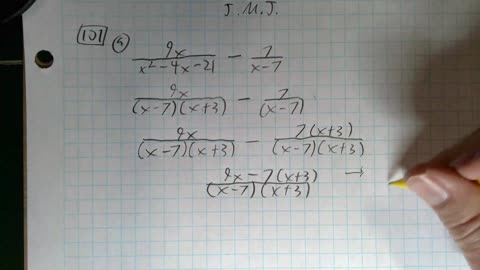 J.M.J.
101 a 9x/(x²-4x-21) - 7/(x-7)
9x/((x-7)(x+3)) - 7/(x-7)
9x/((x-7)(x+3)) - 7(x+3)/((x-7)(x+3))
(9x-7(x+3))/((x-7)(x+3)) →